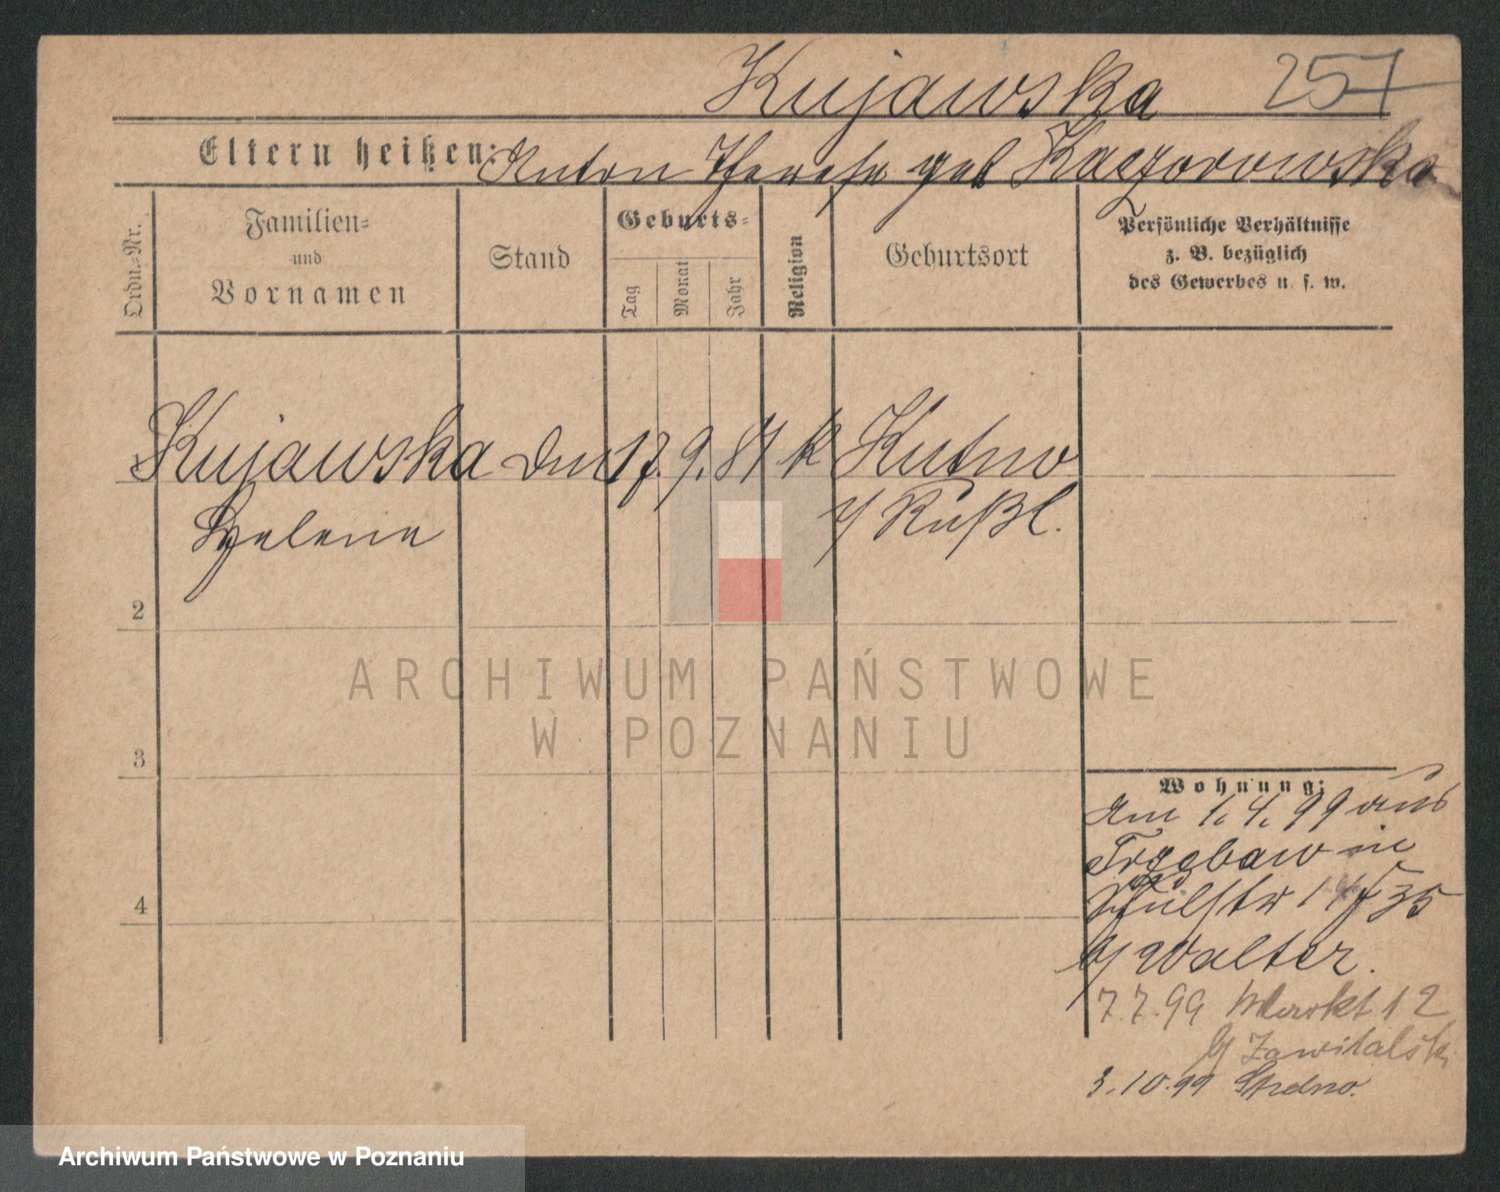 Kujawska 257
Eltern heißen: Anton Therese geb Kaczorowska
Ordn.-Nr.
Familien-
und
Vornamen
Stand
Geburts-
Tag
Monat
Jahr
Religion
Geburtsort
Persönliche Verhältnisse
z. B. bezüglich
des Gewerbes u. s. w.
Kujawska 17. 9. 81 k Kutno
Helene Rußl.
2
3
4
Wohnung:
Am 1. 4. 99 aus
in
35
b/ Walter.
7.7.99 Markt 12
b/ Zawitalski
3.10.99
ARCHIWUM PAŃSTWOWE
W POZNANIU
Archiwum Państwowe w Poznaniu